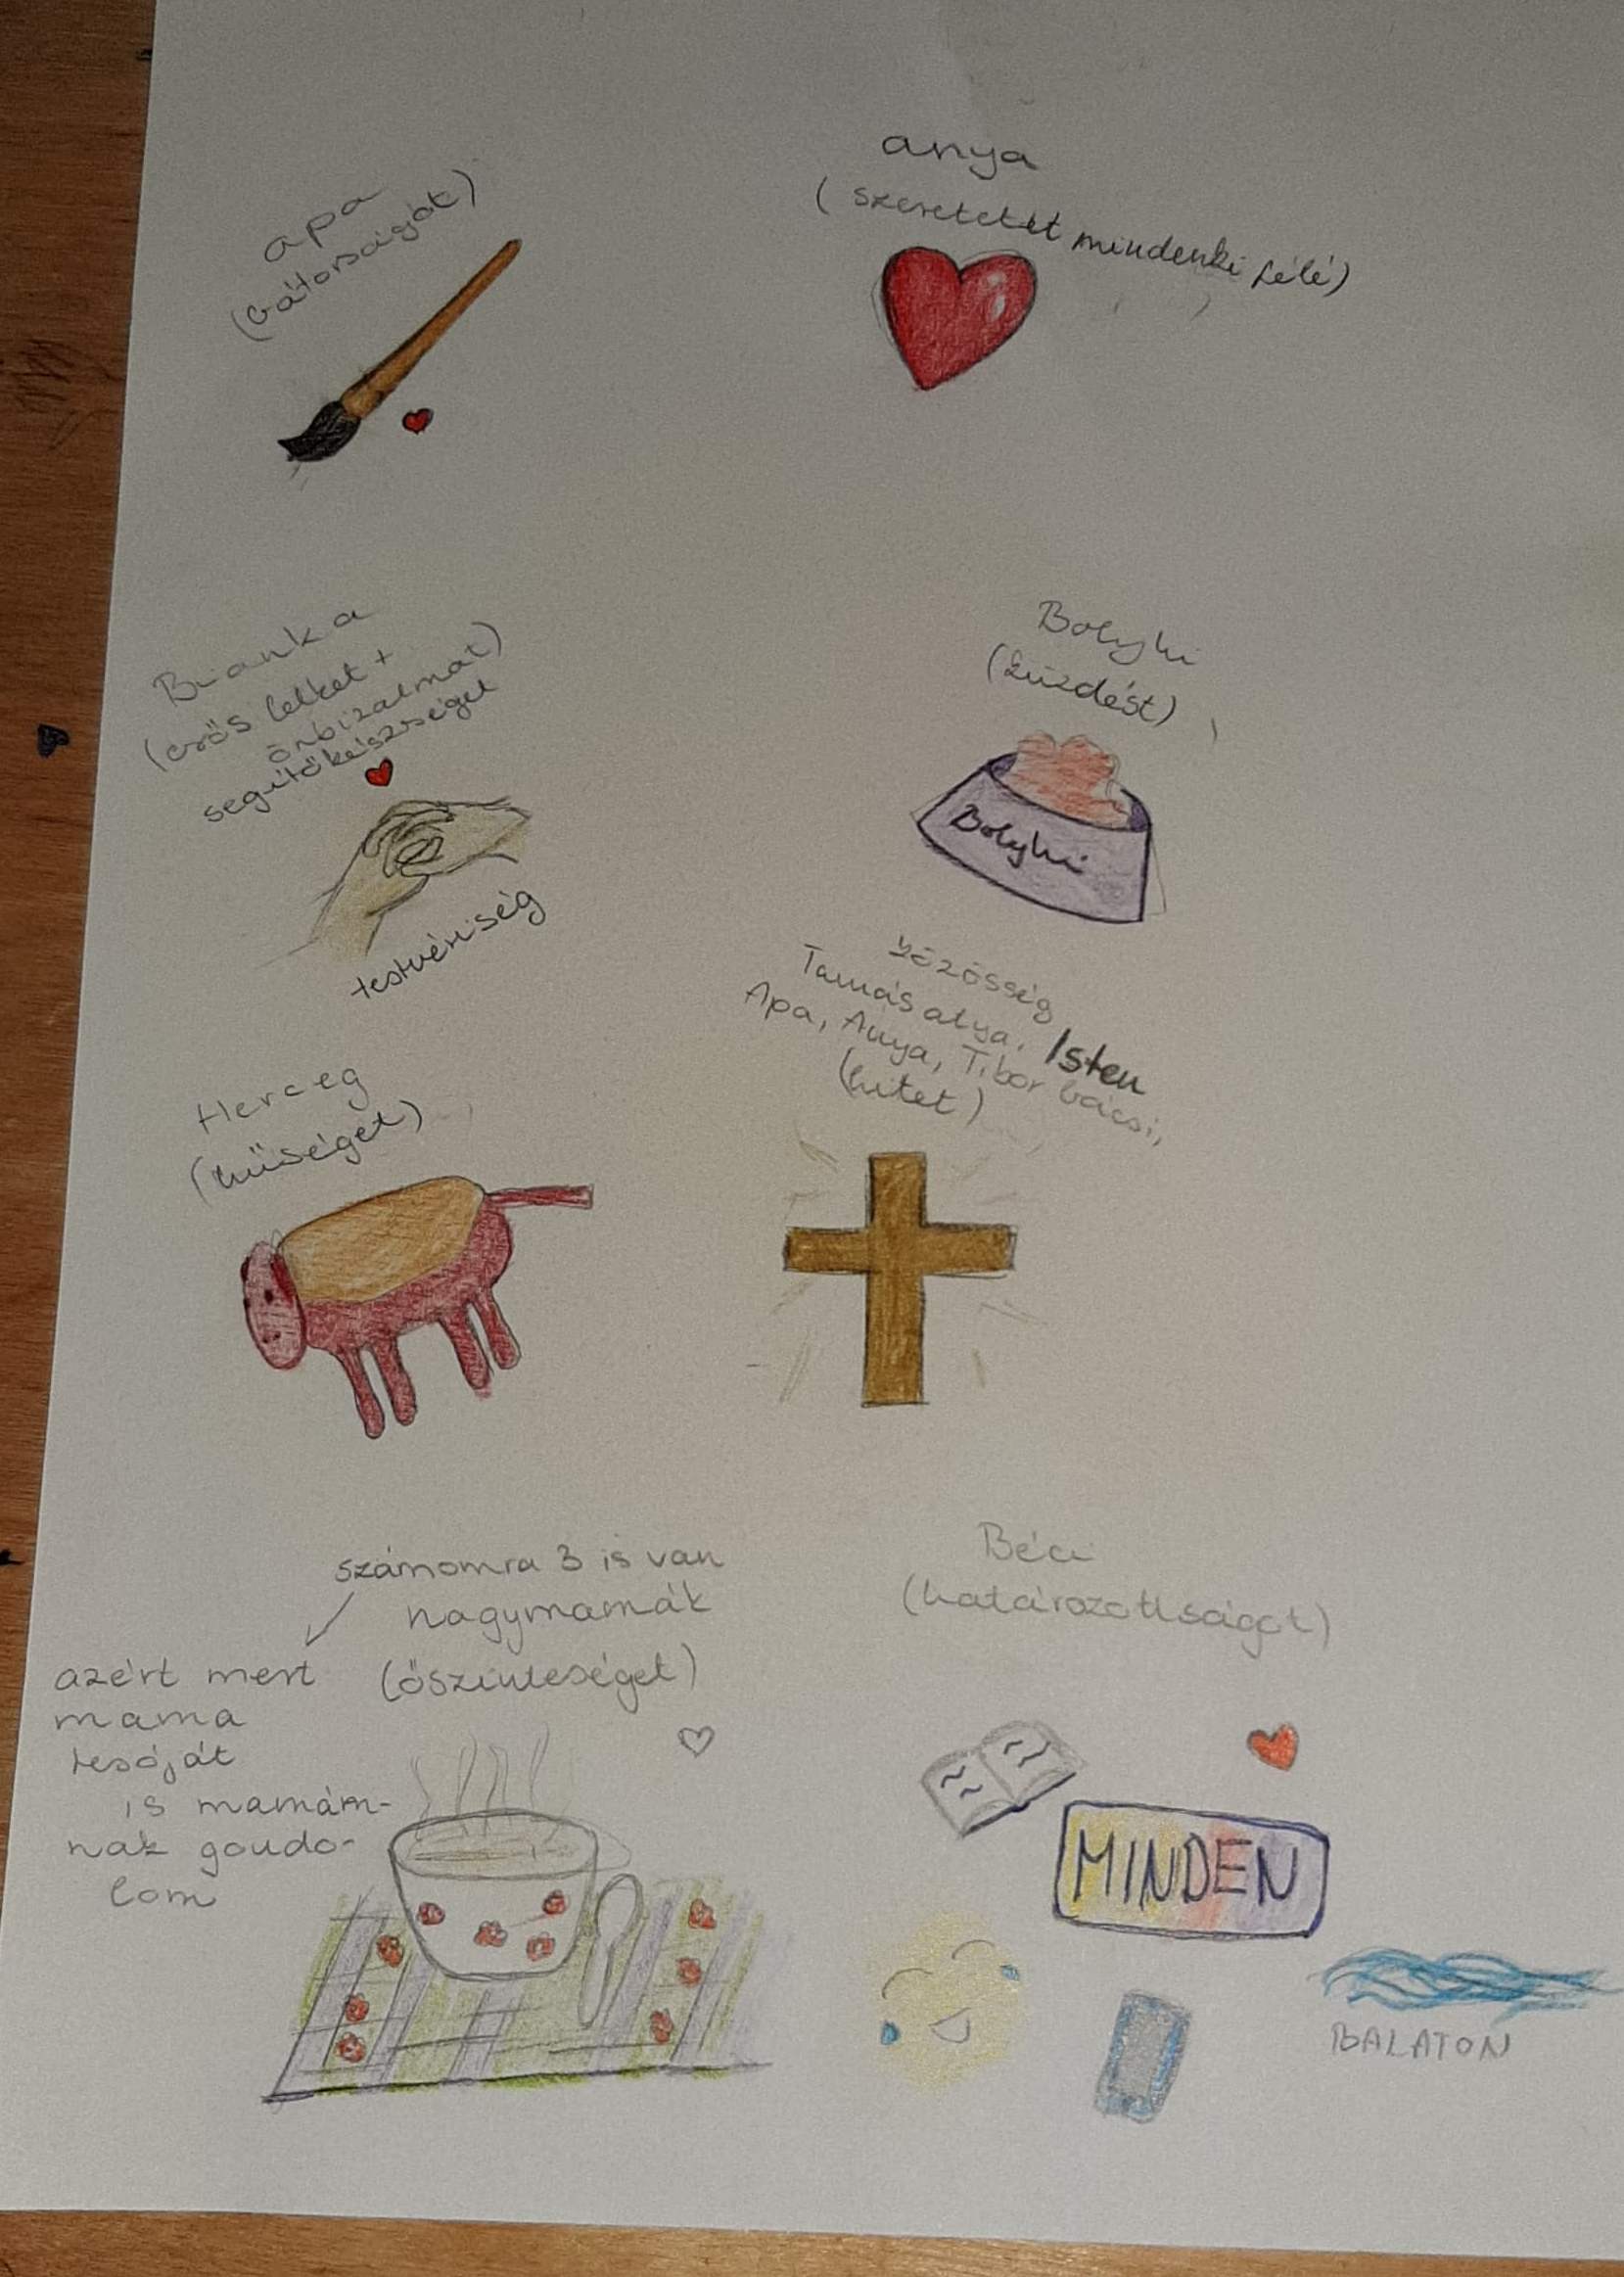 apa
(bátorságát)
anya
(szeretetet mindenki félé)
Bianka
(erős lelket +
önbizalmat)
segítőkészséget
testvériség
Bolyhi
(küzdést)
Bolyhi
közösség
Tamás atya, Isten
Apa, Anya, Tibor bácsi,
(hitet)
Herceg
(hűséget)
számomra 3 is van
nagymamák
(őszinteséget)
azért mert
mama
tesóját
is mamám-
nak gondo-
lom
Béci
(határozottságot)
MINDEN
BALATON